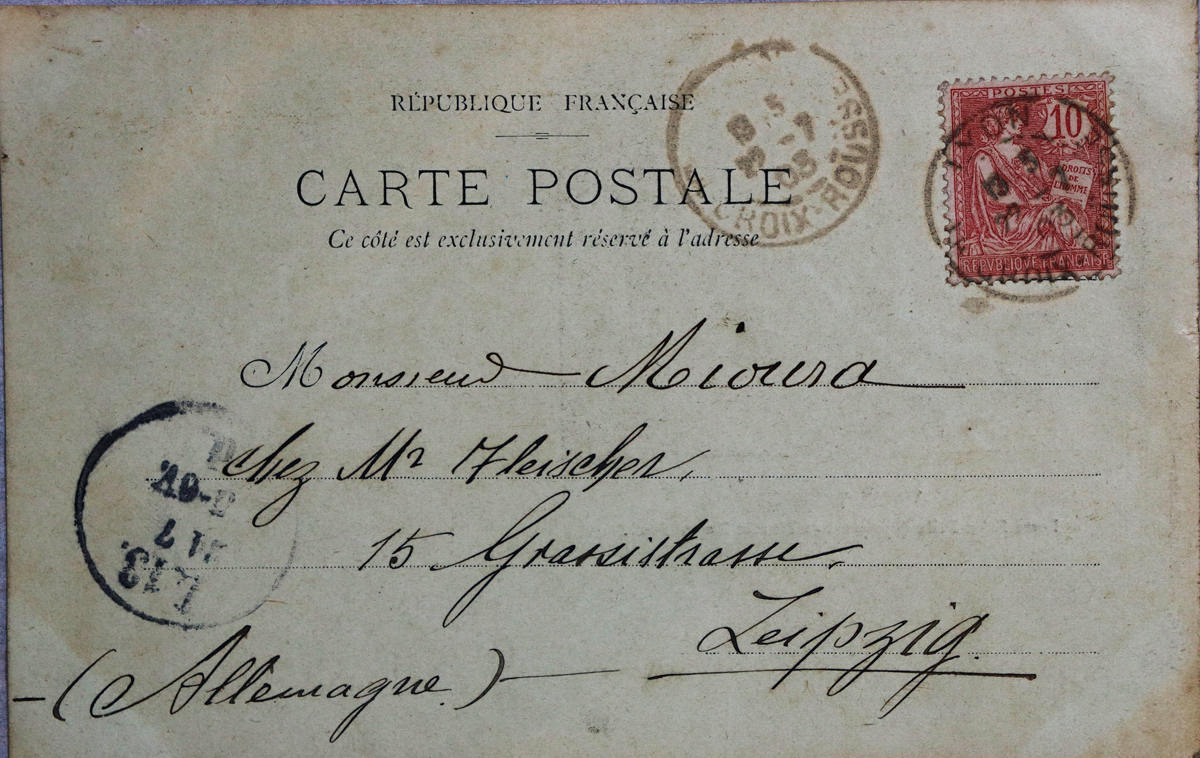 RÉPUBLIQUE FRANÇAISE
CARTE POSTALE
Ce côté est exclusivement réservé à l'adresse
CROIX-ROUSSE
POSTES
10
DROITS
DE
L'HOMME
REPVBLIQVE FRANÇAISE
LYON
Monsieur Mioura
chez Mr Fleischer,
15 Grassistrasse,
Leipzig.
(Allemagne.)
L.13.